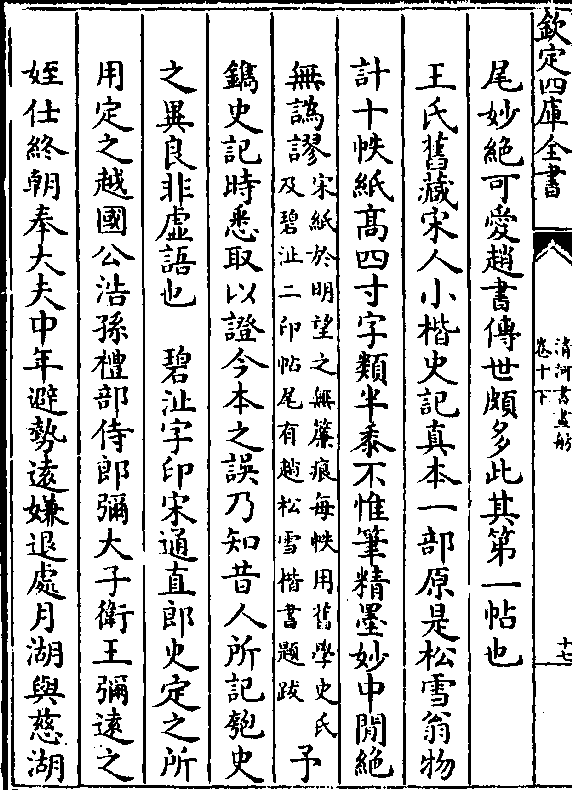 欽定四庫全書
清河書畫舫
卷十下
十七
尾妙絶可愛趙書傳世頗多此其第一帖也
王氏舊藏宋人小楷史記真本一部原是松雪翁物
計十帙紙高四寸字類半黍不惟筆精墨妙中閒絶
無譌謬宋紙於明望之無簾痕每帙用舊學史氏
及碧沚二印帖尾有趙松雪楷書題跋予
鐫史記時悉取以證今本之誤乃知昔人所記匏史
之異良非虚語也　碧沚字印宋通直郎史定之所
用定之越國公浩孫禮部侍郎彌大子衛王彌遠之
姪仕終朝奉大夫中年避勢遠嫌退處月湖與慈湖